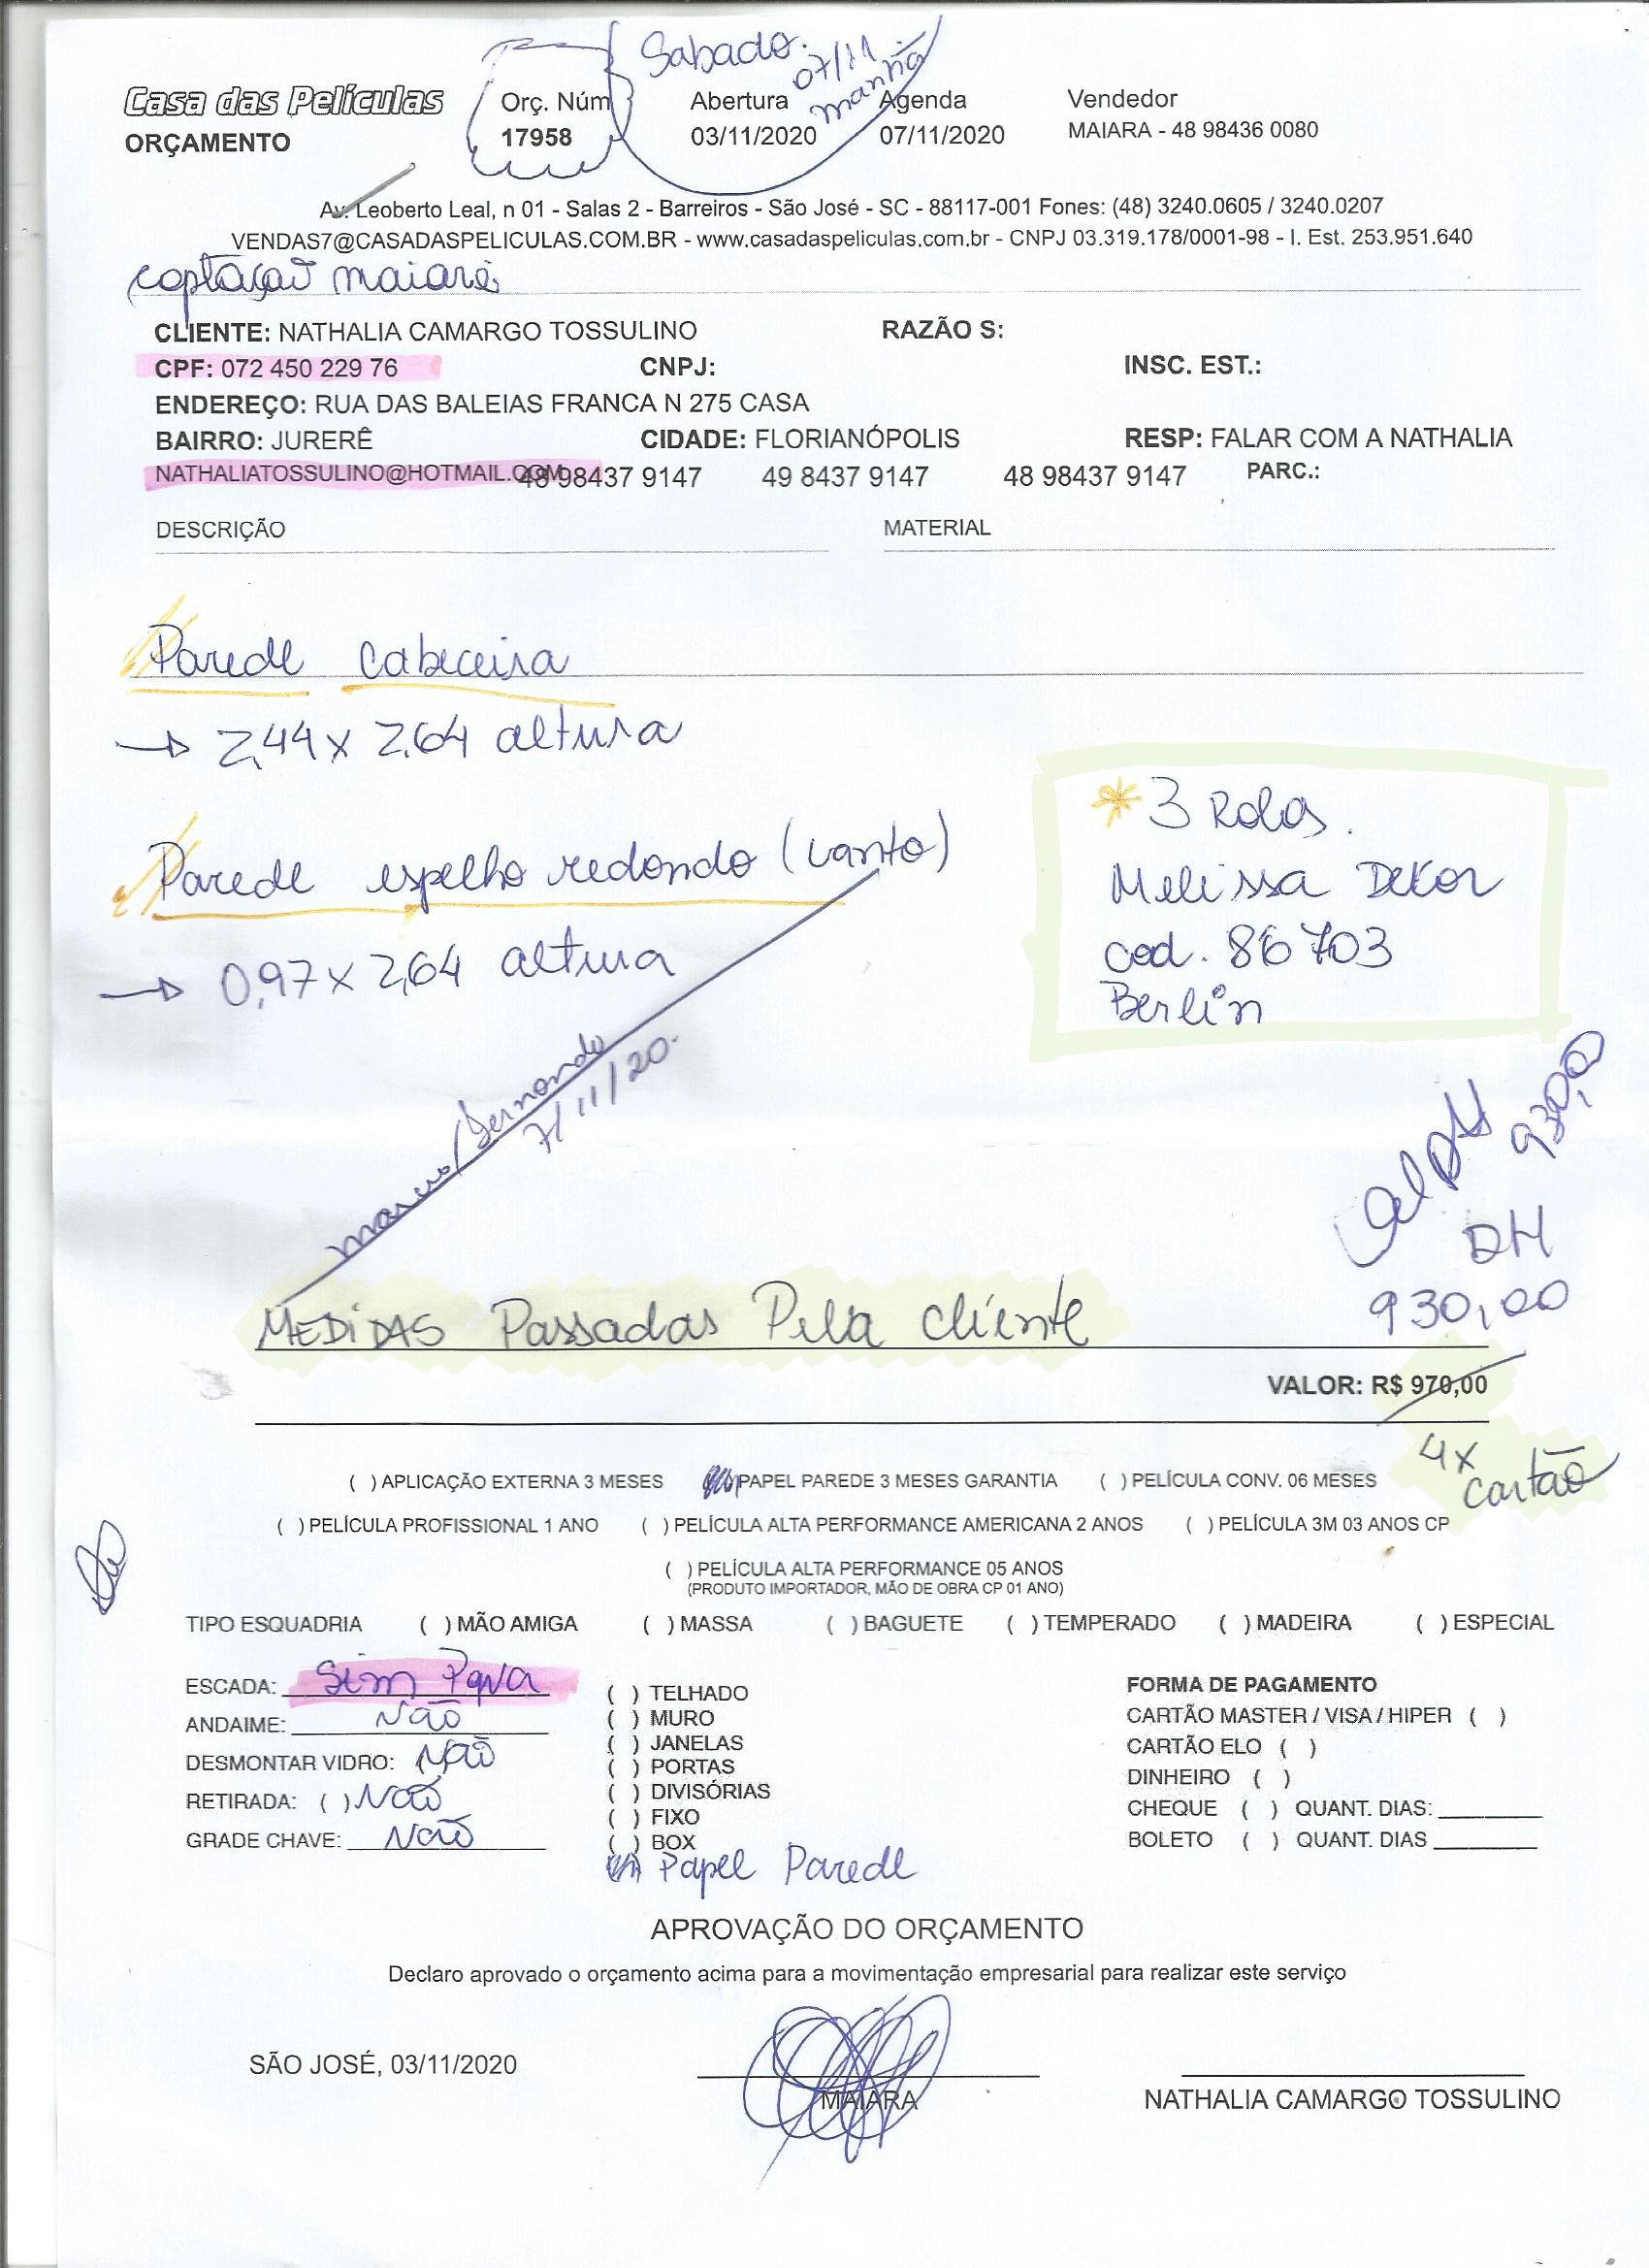 Sabado. 07/11 manhã
Casa das Películas
ORÇAMENTO
Orç. Núm
17958
Abertura
03/11/2020
Agenda
07/11/2020
Vendedor
MAIARA - 48 98436 0080
Av. Leoberto Leal, n 01 - Salas 2 - Barreiros - São José - SC - 88117-001 Fones: (48) 3240.0605 / 3240.0207
VENDAS7@CASADASPELICULAS.COM.BR - www.casadaspeliculas.com.br - CNPJ 03.319.178/0001-98 - I. Est. 253.951.640
captação maiara
CLIENTE: NATHALIA CAMARGO TOSSULINO RAZÃO S:
CPF: 072 450 229 76 CNPJ: INSC. EST.:
ENDEREÇO: RUA DAS BALEIAS FRANCA N 275 CASA
BAIRRO: JURERÊ CIDADE: FLORIANÓPOLIS RESP: FALAR COM A NATHALIA
NATHALIATOSSULINO@HOTMAIL.COM 48 98437 9147 49 8437 9147 48 98437 9147 PARC.:
DESCRIÇÃO MATERIAL
Parede cabeceira
→ 2,44 x 2,64 altura
Parede espelho redondo (canto)
→ 0,97 x 2,64 altura
* 3 Rolos.
Melissa Dekor
cod. 86703
Berlin
7/11/20.
930,00
DH
930,00
MEDIDAS Passadas Pela cliente
VALOR: R$ 970,00
4x
cartão
( ) APLICAÇÃO EXTERNA 3 MESES PAPEL PAREDE 3 MESES GARANTIA ( ) PELÍCULA CONV. 06 MESES
( ) PELÍCULA PROFISSIONAL 1 ANO ( ) PELÍCULA ALTA PERFORMANCE AMERICANA 2 ANOS ( ) PELÍCULA 3M 03 ANOS CP
( ) PELÍCULA ALTA PERFORMANCE 05 ANOS
(PRODUTO IMPORTADOR, MÃO DE OBRA CP 01 ANO)
TIPO ESQUADRIA ( ) MÃO AMIGA ( ) MASSA ( ) BAGUETE ( ) TEMPERADO ( ) MADEIRA ( ) ESPECIAL
ESCADA: Sim
ANDAIME: Não
DESMONTAR VIDRO: Não
RETIRADA: ( ) Não
GRADE CHAVE: Não
( ) TELHADO
( ) MURO
( ) JANELAS
( ) PORTAS
( ) DIVISÓRIAS
( ) FIXO
( ) BOX
Papel Parede
FORMA DE PAGAMENTO
CARTÃO MASTER / VISA / HIPER ( )
CARTÃO ELO ( )
DINHEIRO ( )
CHEQUE ( ) QUANT. DIAS:
BOLETO ( ) QUANT. DIAS
APROVAÇÃO DO ORÇAMENTO
Declaro aprovado o orçamento acima para a movimentação empresarial para realizar este serviço
SÃO JOSÉ, 03/11/2020
MAIARA
NATHALIA CAMARGO TOSSULINO